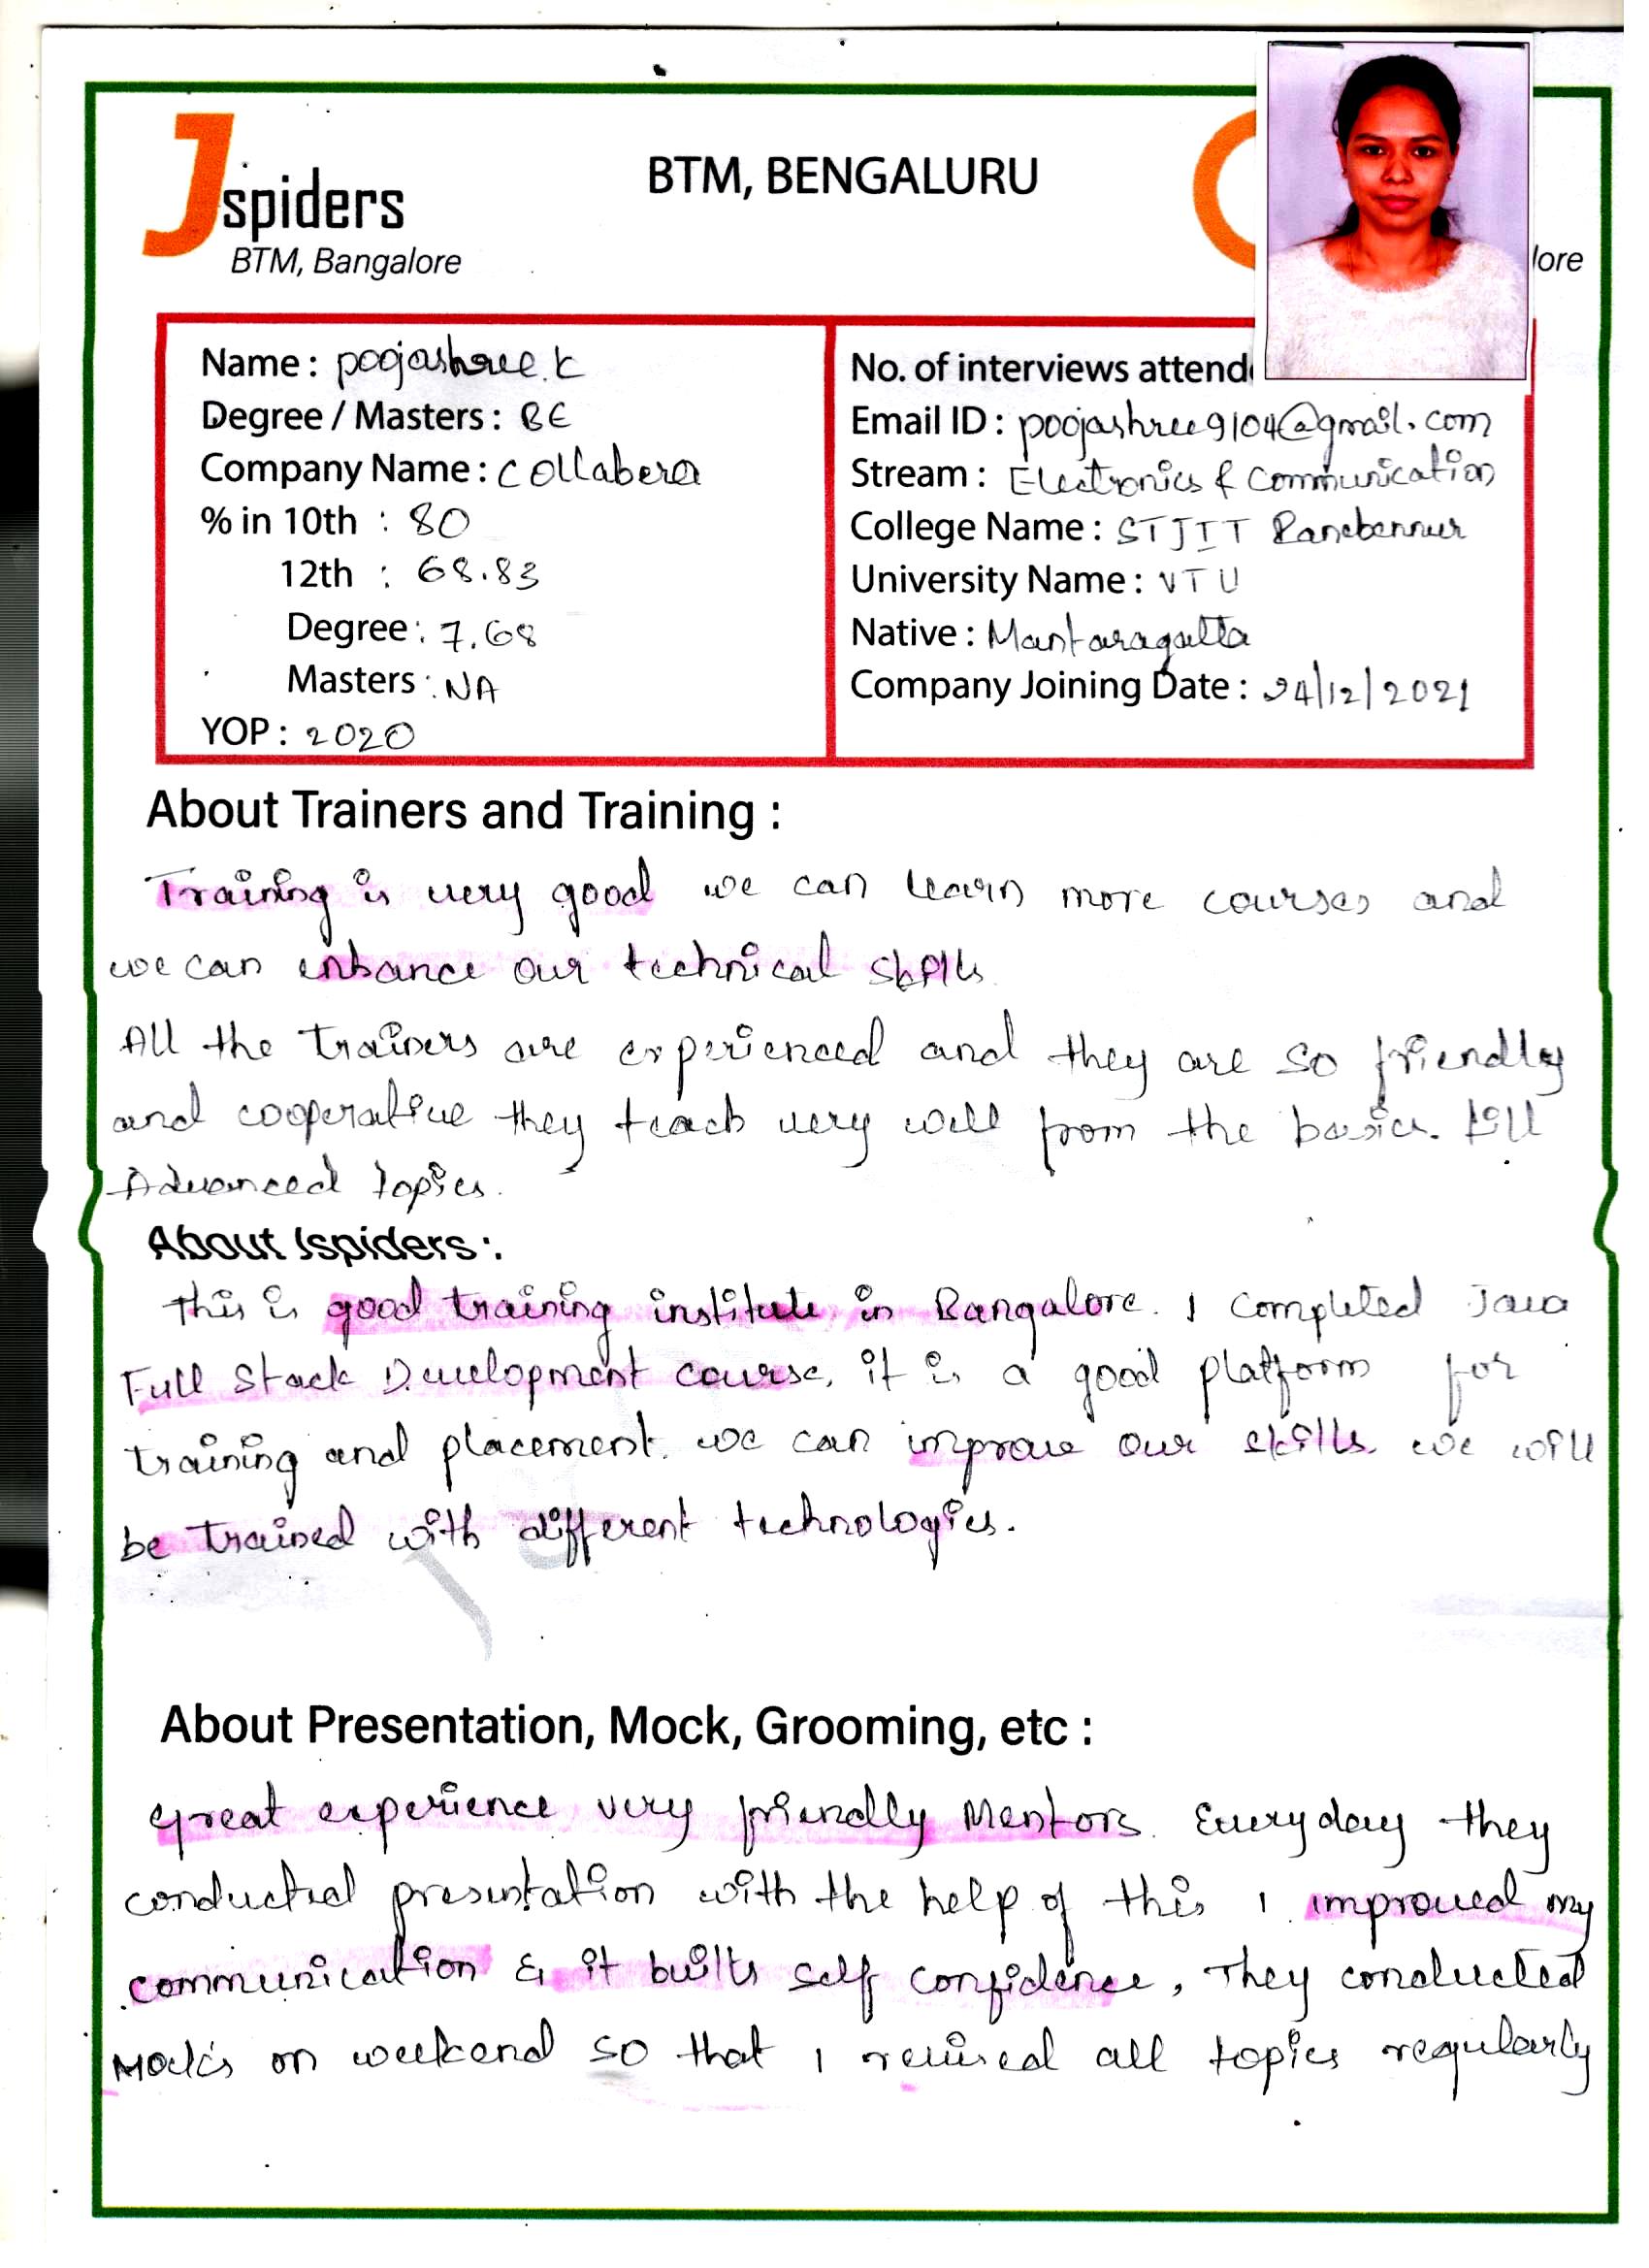 Jspiders
BTM, Bangalore
BTM, BENGALURU
lore
Name : poojashree.k
Degree / Masters : BE
Company Name : Collabera
% in 10th : 80
12th : 68.83
Degree : 7.68
Masters : NA
YOP : 2020
No. of interviews attend
Email ID : poojashree9104@gmail.com
Stream : Electronics & Communication
College Name : STJIT Ranebennur
University Name : VTU
Native : Mantaragatta
Company Joining Date : 24/12/2021
About Trainers and Training :
Training is very good we can learn more courses and
we can enhance our technical skills
All the trainers are experienced and they are so friendly
and cooperative they teach very well from the basics. till
Advanced topics.
About Jspiders :
This is good training institute in Bangalore. I completed Java
Full Stack Development course, it is a good platform for
training and placement. we can improve our skills. we will
be trained with different technologies.
About Presentation, Mock, Grooming, etc :
Great experience very friendly Mentors. Everyday they
conducted presentation with the help of this I improved my
communication & it builts self confidence, They conducted
Mock's on weekend so that I revised all topics regularly